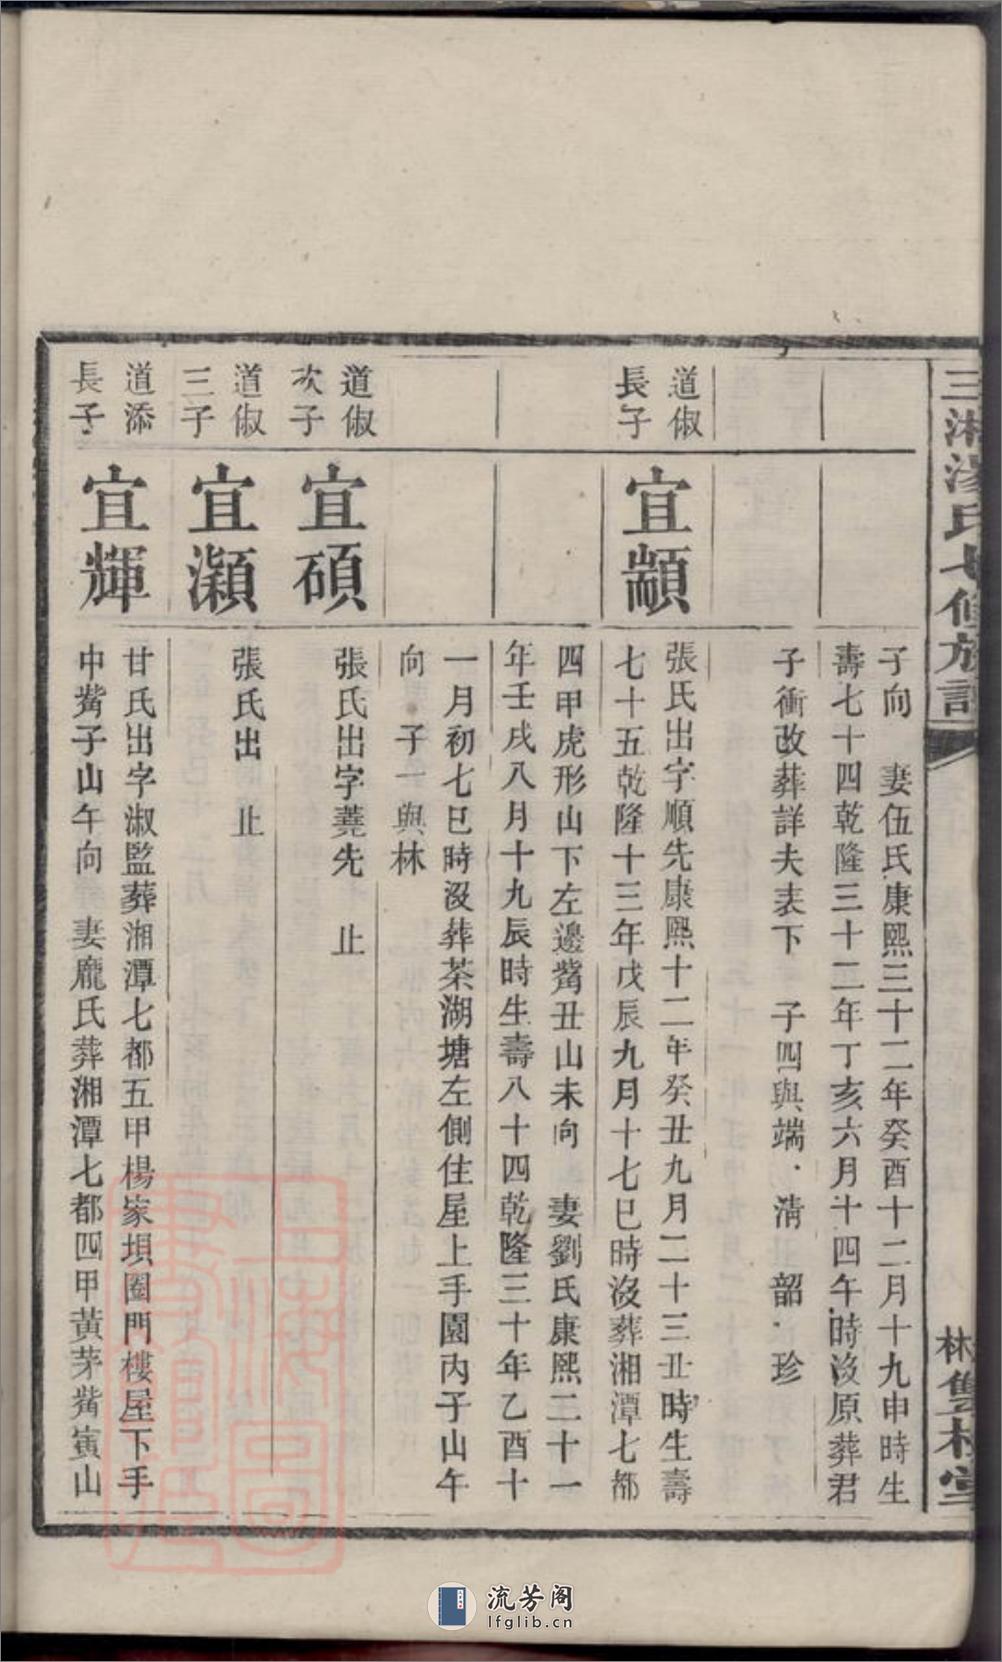 三湘湯氏七修族譜
林雙桂堂
子向　妻伍氏康熙三十二年癸酉十二月十九申時生
壽七十四乾隆三十二年丁亥六月十四午時沒原葬君
子衝改葬詳夫表下　子四與端·清　韶·珍
道俶
長子
宜顓
張氏出字順先康熙十二年癸丑九月二十三丑時生壽
七十五乾隆十三年戊辰九月十七巳時沒葬湘潭七都
四甲虎形山下左邊觜丑山未向　妻劉氏康熙二十一
年壬戌八月十九辰時生壽八十四乾隆三十年乙酉十
一月初七巳時沒葬茶湖塘左側住屋上手園內子山午
向　子一與林
道俶
次子
宜碩
張氏出字蕘先　止
道俶
三子
宜灝
張氏出　止
道添
長子
宜輝
甘氏出字淑監葬湘潭七都五甲楊家垻圈門樓屋下手
中觜子山午向　妻龐氏葬湘潭七都四甲黃茅觜寅山
流芳阁
lfglib.cn